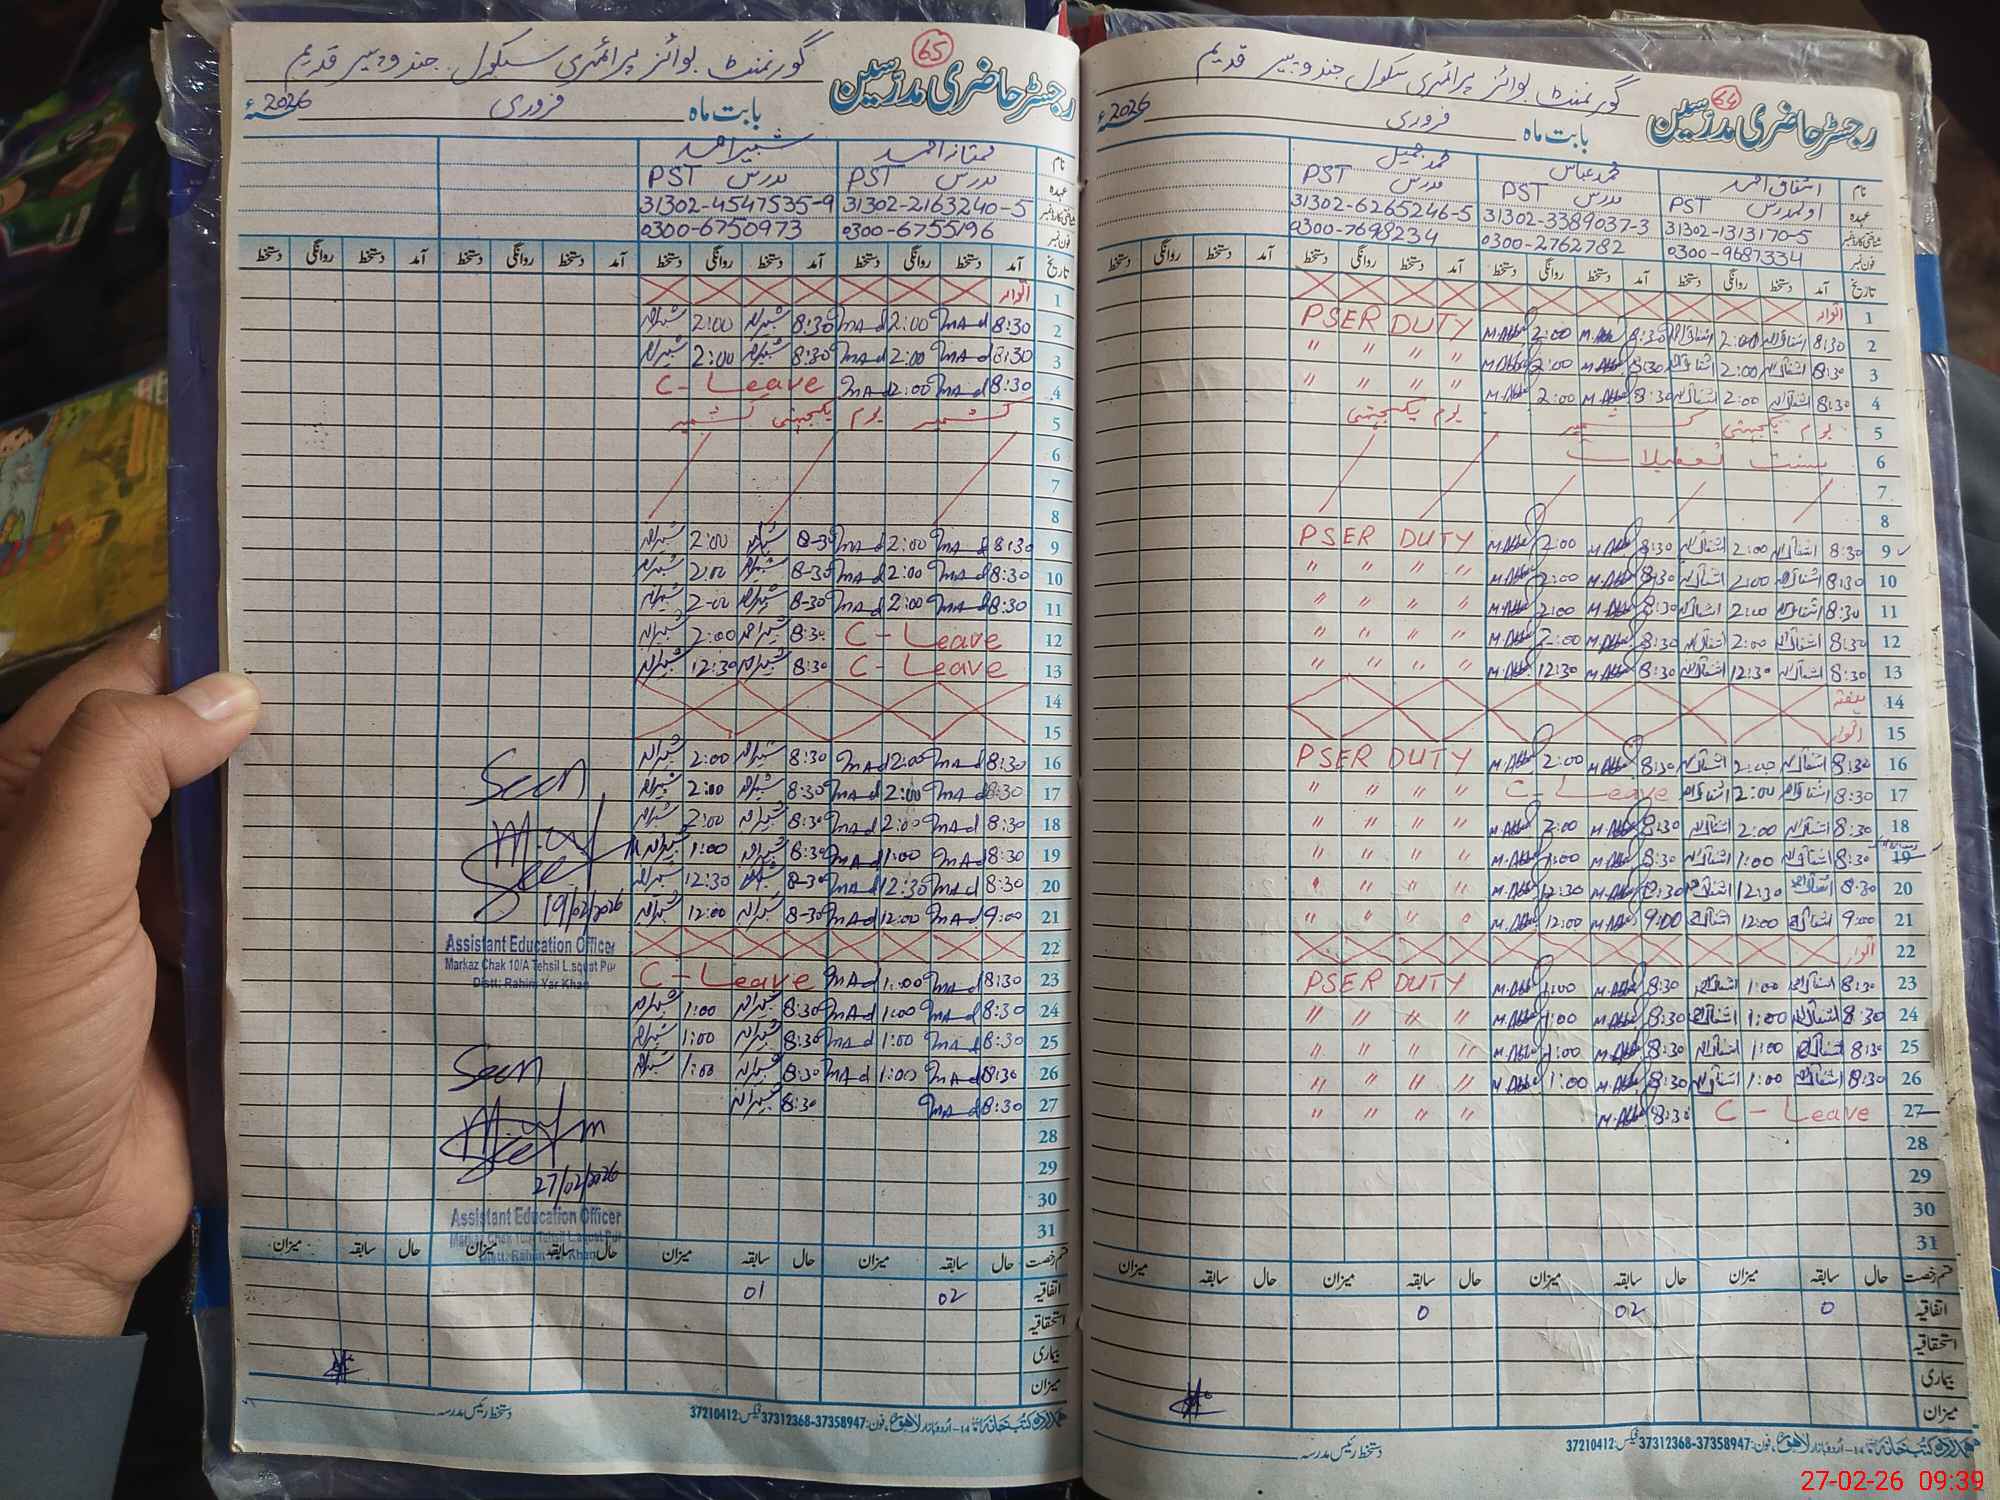 رجسٹر حاضری مدرسین 64 گورنمنٹ بوائز پرائمری سکول جندو پیر قدیم
بابت ماہ فروری 2026ء
نام اشفاق احمد محمد عباس محمد جمیل
عہدہ اول مدرس PST مدرس PST مدرس PST
شناختی کارڈ نمبر 31302-1313170-5 31302-3389037-3 31302-6265246-5
فون نمبر 0300-9687334 0300-2762782 0300-7698234
تاریخ آمد دستخط روانگی دستخط آمد دستخط روانگی دستخط آمد دستخط روانگی دستخط آمد دستخط روانگی دستخط
1 اتوار
2 8:30 اشفاق احمد 2:00 اشفاق احمد 8:30 M.Abbas 2:00 M.Abbas PSER DUTY
3 8:30 اشفاق احمد 2:00 اشفاق احمد 8:30 M.Abbas 2:00 M.Abbas " " " "
4 8:30 اشفاق احمد 2:00 اشفاق احمد 8:30 M.Abbas 2:00 M.Abbas " " " "
5 یوم یکجہتی کشمیر یوم یکجہتی
6 بسنت تعطیلات
7
8
9 8:30 اشفاق احمد 2:00 اشفاق احمد 8:30 M.Abbas 2:00 M.Abbas PSER DUTY
10 8:30 اشفاق احمد 2:00 اشفاق احمد 8:30 M.Abbas 2:00 M.Abbas " " " "
11 8:30 اشفاق احمد 2:00 اشفاق احمد 8:30 M.Abbas 2:00 M.Abbas " " " "
12 8:30 اشفاق احمد 2:00 اشفاق احمد 8:30 M.Abbas 2:00 M.Abbas " " " "
13 8:30 اشفاق احمد 12:30 اشفاق احمد 8:30 M.Abbas 12:30 M.Abbas " " " "
14 ہفتہ
15 اتوار
16 8:30 اشفاق احمد 2:00 اشفاق احمد 8:30 M.Abbas 2:00 M.Abbas PSER DUTY
17 8:30 اشفاق احمد 2:00 اشفاق احمد C - Leave " " " "
18 8:30 اشفاق احمد 2:00 اشفاق احمد 8:30 M.Abbas 2:00 M.Abbas " " " "
19 8:30 اشفاق احمد 1:00 اشفاق احمد 8:30 M.Abbas 1:00 M.Abbas " " " "
20 8:30 اشفاق احمد 12:30 اشفاق احمد 8:30 M.Abbas 12:30 M.Abbas " " " "
21 9:00 اشفاق احمد 12:00 اشفاق احمد 9:00 M.Abbas 12:00 M.Abbas " " " "
22 اتوار
23 8:30 اشفاق احمد 1:00 اشفاق احمد 8:30 M.Abbas 1:00 M.Abbas PSER DUTY
24 8:30 اشفاق احمد 1:00 اشفاق احمد 8:30 M.Abbas 1:00 M.Abbas " " " "
25 8:30 اشفاق احمد 1:00 اشفاق احمد 8:30 M.Abbas 1:00 M.Abbas " " " "
26 8:30 اشفاق احمد 1:00 اشفاق احمد 8:30 M.Abbas 1:00 M.Abbas " " " "
27 C - Leave 8:30 M.Abbas " " " "
28
29
30
31
قسم رخصت حال سابقہ میزان حال سابقہ میزان حال سابقہ میزان حال سابقہ میزان
اتفاقیہ 0 02 0
استحقاقیہ
بیماری
میزان
دستخط رئیس مدرسہ
14-اردو بازار لاہور، فون: 37358947-37312368 فیکس: 37210412
رجسٹر حاضری مدرسین 65 گورنمنٹ بوائز پرائمری سکول جندو پیر قدیم
بابت ماہ فروری 2026ء
نام ممتاز احمد شبیر احمد
عہدہ مدرس PST مدرس PST
شناختی کارڈ نمبر 31302-2163240-5 31302-4547535-9
فون نمبر 0300-6755196 0300-6750973
تاریخ آمد دستخط روانگی دستخط آمد دستخط روانگی دستخط آمد دستخط روانگی دستخط آمد دستخط روانگی دستخط
1 اتوار
2 8:30 mAd 2:00 mAd 8:30 شبیر احمد 2:00 شبیر احمد
3 8:30 mAd 2:00 mAd 8:30 شبیر احمد 2:00 شبیر احمد
4 8:30 mAd 2:00 mAd C - Leave
5 کشمیر یوم یکجہتی کشمیر
6
7
8
9 8:30 mAd 2:00 mAd 8-30 شبیر احمد 2:00 شبیر احمد
10 8:30 mAd 2:00 mAd 8-30 شبیر احمد 2:00 شبیر احمد
11 8:30 mAd 2:00 mAd 8-30 شبیر احمد 2:00 شبیر احمد
12 C - Leave 8:30 شبیر احمد 2:00 شبیر احمد
13 C - Leave 8:30 شبیر احمد 12:30 شبیر احمد
14
15
16 8:30 mAd 2:00 mAd 8:30 شبیر احمد 2:00 شبیر احمد
Seen
17 8:30 mAd 2:00 mAd 8:30 شبیر احمد 2:00 شبیر احمد
18 8:30 mAd 2:00 mAd 8:30 شبیر احمد 2:00 شبیر احمد
19 8:30 mAd 1:00 mAd 8:30 شبیر احمد 1:00 شبیر احمد
20 8:30 mAd 12:30 mAd 8-30 شبیر احمد 12:30 شبیر احمد
21 9:00 mAd 12:00 mAd 8-30 شبیر احمد 12:00 شبیر احمد
19/02/2026
22
Assistant Education Officer
Markaz Chak 10/A Tehsil L.aquat Pur
Distt: Rahim Yar Khan
23 8:30 mAd 1:00 mAd C - Leave
24 8:30 mAd 1:00 mAd 8:30 شبیر احمد 1:00 شبیر احمد
25 8:30 mAd 1:00 mAd 8:30 شبیر احمد 1:00 شبیر احمد
26 8:30 mAd 1:00 mAd 8:30 شبیر احمد 1:00 شبیر احمد
Seen
27 8:30 mAd 8:30 شبیر احمد
28
29
27/02/2026
30
31
Assistant Education Officer
قسم رخصت حال سابقہ میزان حال سابقہ میزان حال سابقہ میزان حال سابقہ میزان
اتفاقیہ 02 01
استحقاقیہ
بیماری
میزان
دستخط رئیس مدرسہ
14-اردو بازار لاہور، فون: 37358947-37312368 فیکس: 37210412
27-02-26 09:39